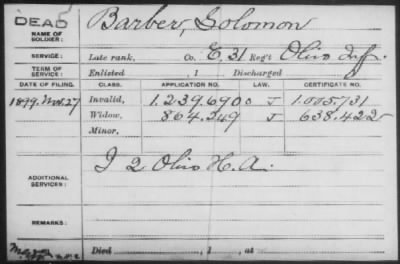 DEAD
NAME OF SOLDIER: Barber, Solomon
SERVICE: Late rank, Co. E, 31 Reg't Ohio Inf.
TERM OF SERVICE: Enlisted , 1 Discharged , 1
DATE OF FILING. CLASS. APPLICATION NO. LAW. CERTIFICATE NO.
1899, Nov. 27 Invalid, 1.239.690 J 1.005.731
Widow, 864.349 J 638.422
Minor,
ADDITIONAL SERVICES: I 2 Ohio H.A.
REMARKS:
Died , 1 , at